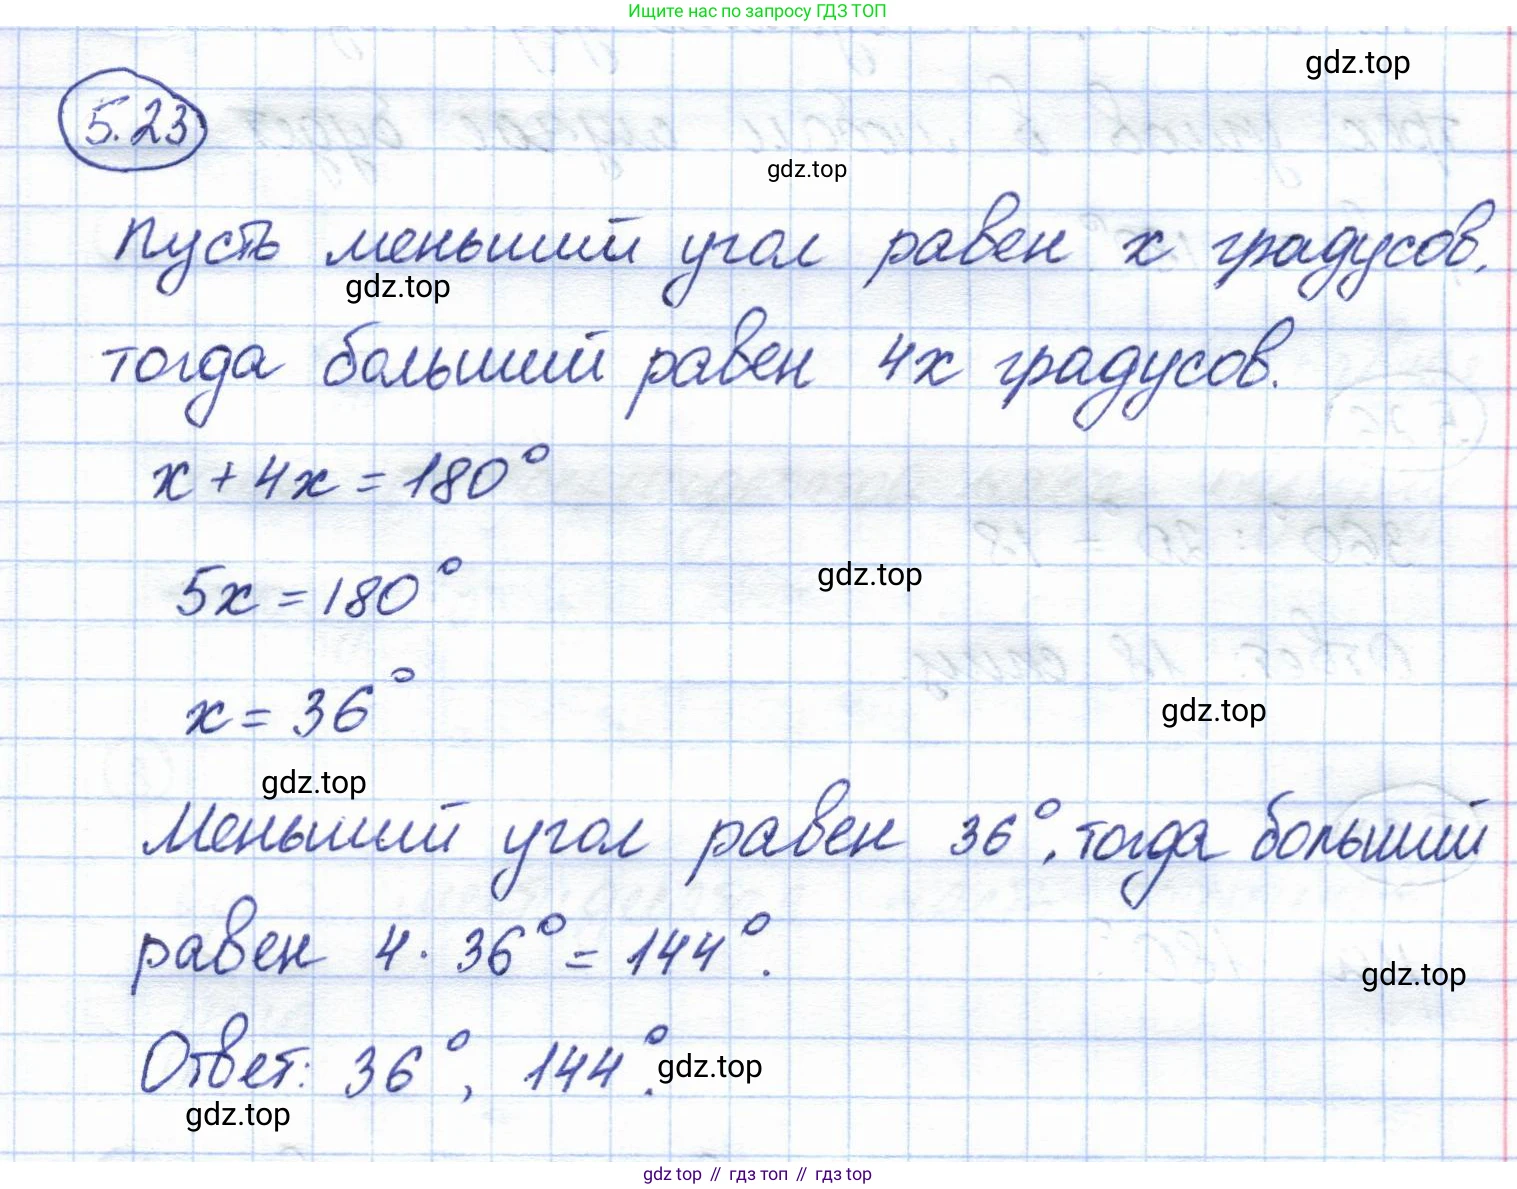 Ищите нас по запросу ГДЗ ТОП
gdz.top
5.23
gdz.top
Пусть меньший угол равен x градусов,
gdz.top
тогда больший равен 4x градусов.
x + 4x = 180°
5x = 180°
gdz.top
x = 36°
gdz.top
gdz.top
Меньший угол равен 36°, тогда больший
равен 4 · 36° = 144°.
gdz.top
Ответ: 36°, 144°.
gdz.top
gdz.top
gdz top // гдз топ // гдз top